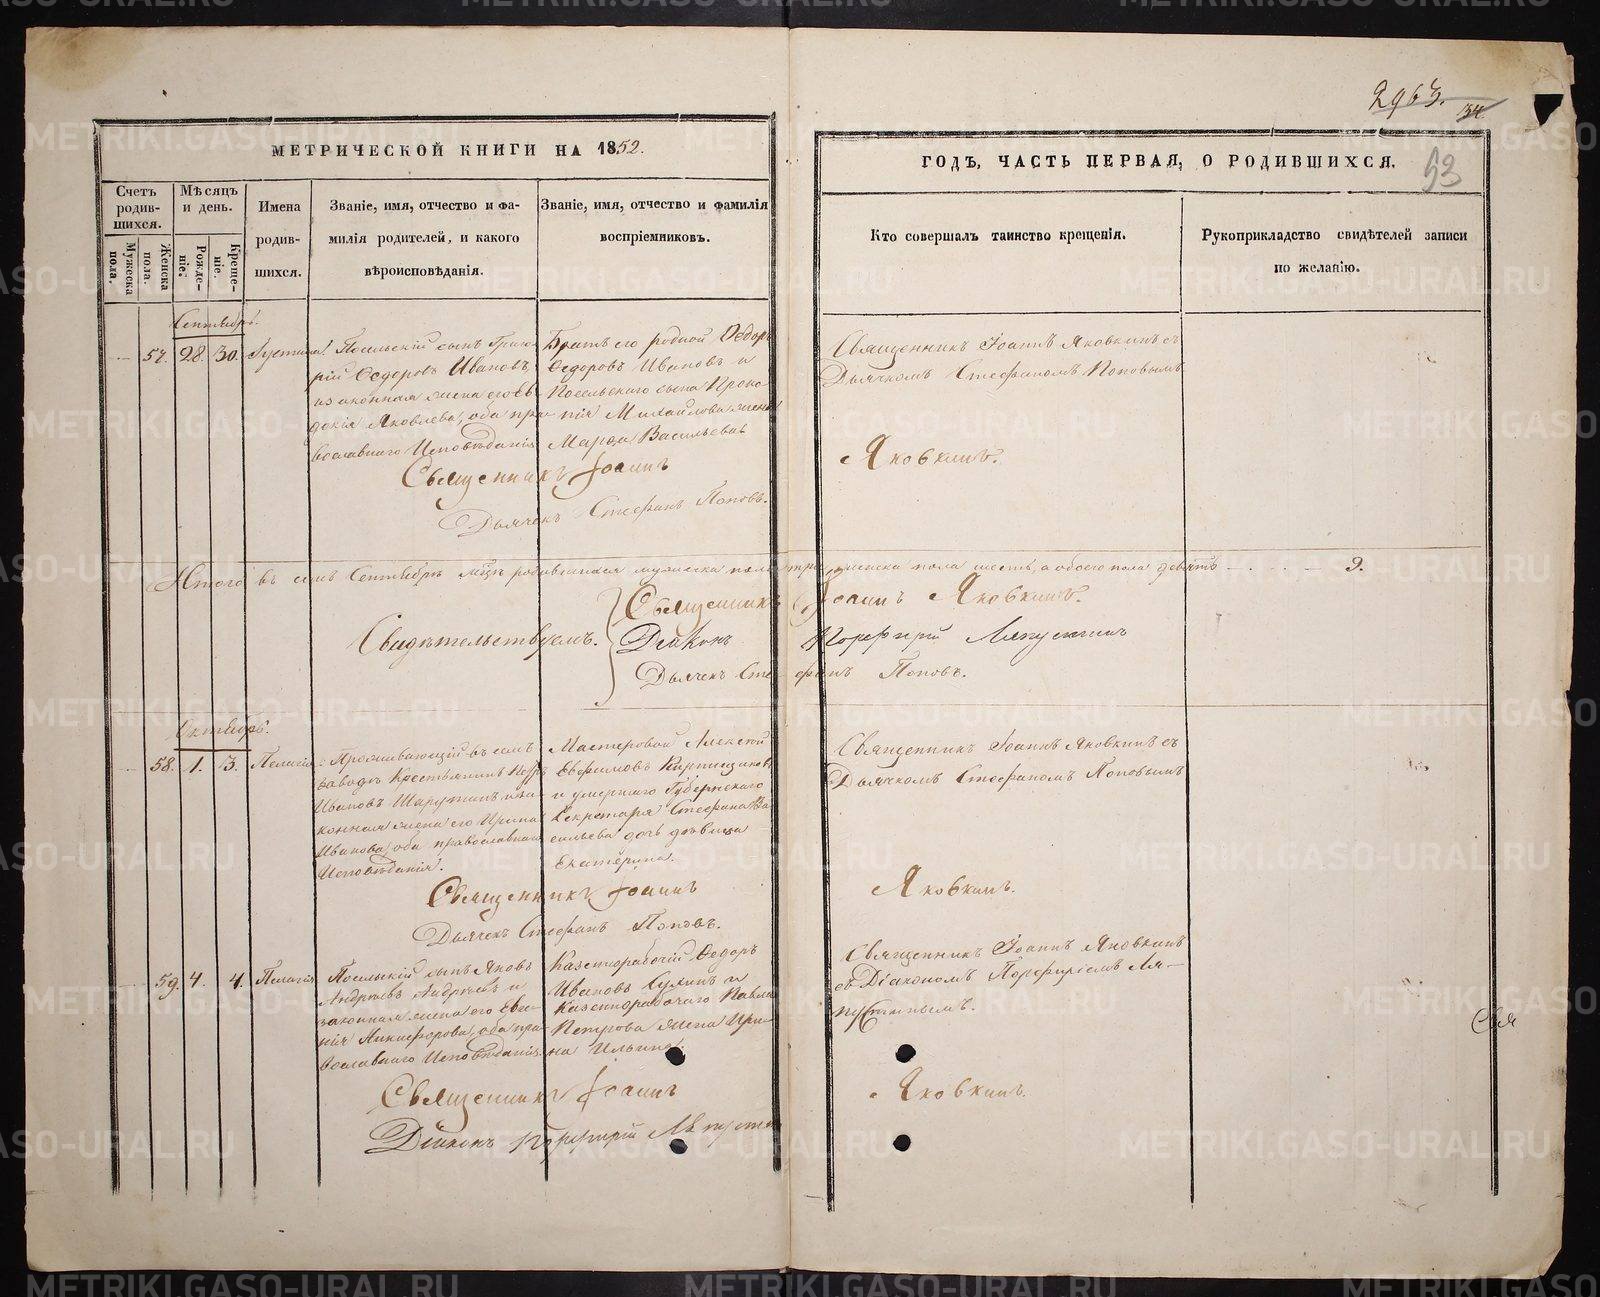 2963.
34
53
МЕТРИЧЕСКОЙ КНИГИ НА 1852.
ГОДЪ, ЧАСТЬ ПЕРВАЯ, О РОДИВШИХСЯ.
Счетъ родившихся.
Мужеска пола.
Женска пола.
Мѣсяцъ и день.
Рожденіе.
Крещеніе.
Имена родившихся.
Званіе, имя, отчество и фамилія родителей, и какого вѣроисповѣданія.
Званіе, имя, отчество и фамилія воспріемниковъ.
Кто совершалъ таинство крещенія.
Рукоприкладство свидѣтелей записи по желанію.
Сентябрь.
57. 28. 30. Іустина
Посельскій сынъ Григо-
рій Ѳедоровъ Ивановъ,
и законная жена его Ев-
докія Яковлева, оба пра-
вославнаго Исповѣданія
Братъ его родной Ѳедоръ
Ѳедоровъ Ивановъ и
Посельскаго сына Проко-
пія Михайлова жена
Марѳа Васильева
Священникъ Іоаннъ Яковкинъ съ
Дьячкомъ Стефаномъ Поповымъ
Священникъ Іоаннъ Яковкинъ.
Дьячекъ Стефанъ Поповъ.
Итого въ семъ Сентябрѣ мцѣ родившихся мужеска пола три, женска пола шесть, а обоего пола девять 9.
Свидѣтельствуемъ.
Священникъ Іоаннъ Яковкинъ.
Діаконъ Порфирій Ляпустинъ
Дьячекъ Стефанъ Поповъ.
Октябрь.
58. 1. 3. Пелагія
Проживающій въ семъ
заводѣ крестьянинъ Петръ
Ивановъ и за-
конная жена его Ирина
Иванова, оба православнаго
Исповѣданія.
Мастеровой Алексей
Евфимовъ Кирпищиковъ
и умершаго Губернскаго
Секретаря Стефана Ва-
сильева дочь дѣвица
Екатерина.
Священникъ Іоаннъ Яковкинъ съ
Дьячкомъ Стефаномъ Поповымъ
Священникъ Іоаннъ Яковкинъ.
Дьячекъ Стефанъ Поповъ.
59. 4. 4. Пелагія
Посельскій сынъ Яковъ
Андреевъ Андреевъ и
законная жена его Евге-
нія Никифорова, оба пра-
вославнаго Исповѣданія
Казеннорабочій Ѳедоръ
Ивановъ и
Казеннорабочаго Павла
Петрова жена Ири-
на Ильина.
Священникъ Іоаннъ Яковкинъ
съ Діакономъ Порфиріемъ Ля-
пустинымъ.
Священникъ Іоаннъ Яковкинъ.
Діаконъ Порфирій Ляпустин
METRIKI.GASO-URAL.RU